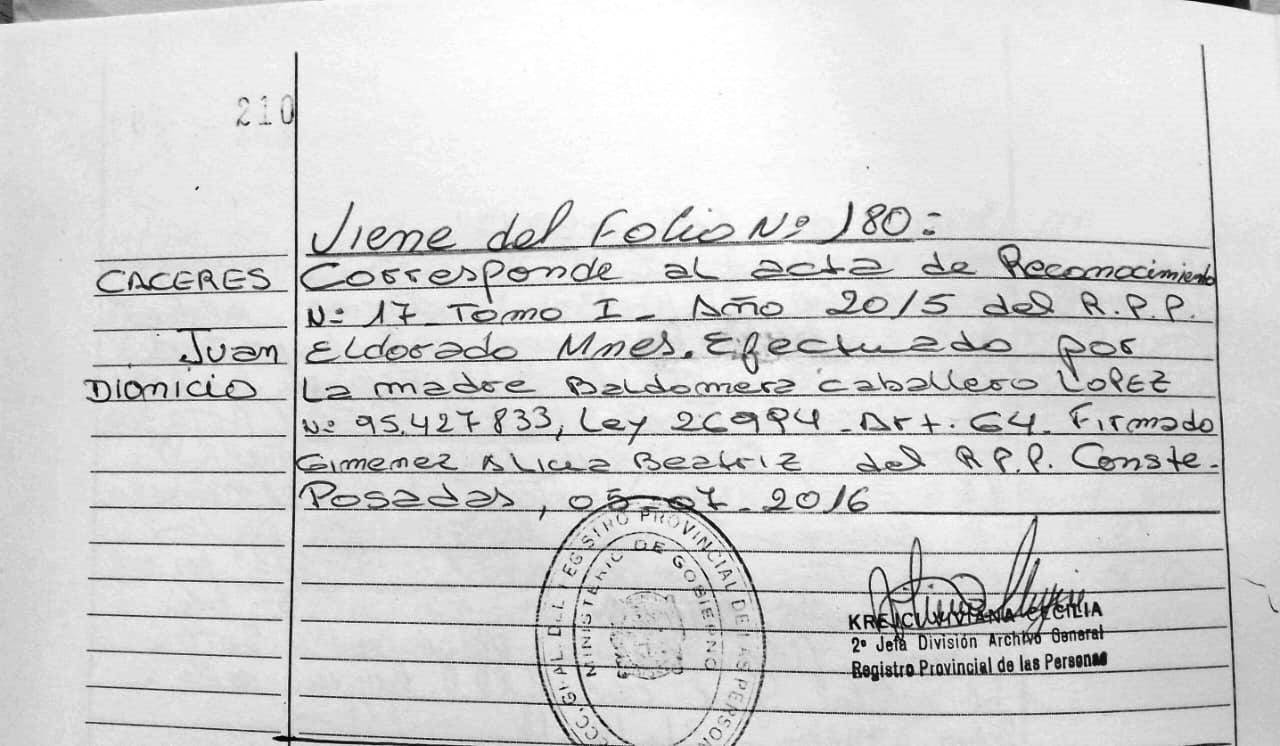 210
Viene del Folio Nº 180:
CACERES
Corresponde al acta de Reconocimiento
Nº 17 - Tomo I - Año 2015 del R.P.P.
Juan
Eldorado Mnes. Efectuado por
DIONICIO
La madre Baldomera caballero LOPEZ
Nº 95.427833, Ley 26994 - Art. 64 - Firmado
Gimenez Alicia Beatriz del R.P.P. Conste.-
Posadas, 05-07-2016
GRAL DEL REGISTRO PROVINCIAL DE LAS PERSON
MINISTERIO DE GOBIERNO
VIVIANA CECILIA
2º Jefa División Archivo General
Registro Provincial de las Personas